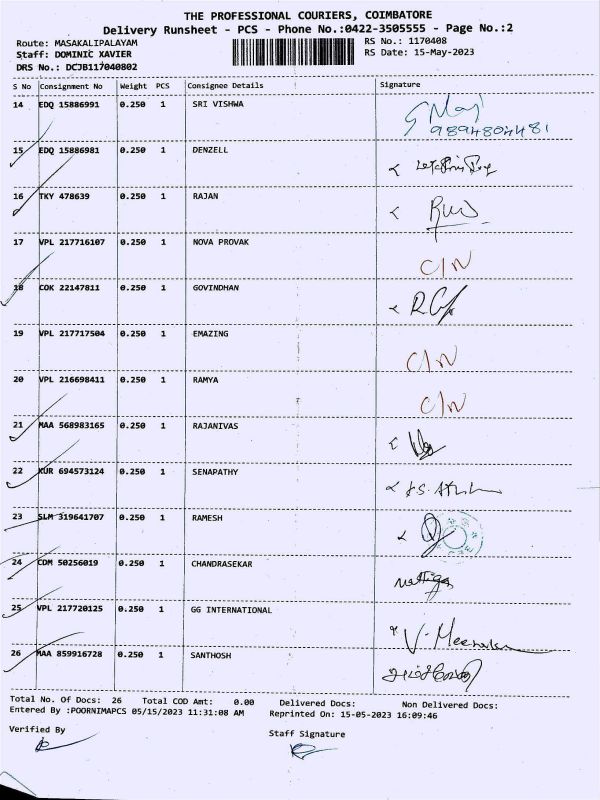 THE PROFESSIONAL COURIERS, COIMBATORE
Delivery Runsheet - PCS - Phone No.:0422-3505555 - Page No.:2
Route: MASAKALIPALAYAM RS No.: 1170408
Staff: DOMINIC XAVIER RS Date: 15-May-2023
DRS No.: DCJB117040802
S No Consignment No Weight PCS Consignee Details Signature
14 EDQ 15886991 0.250 1 SRI VISHWA
9894804481
15 EDQ 15886981 0.250 1 DENZELL
16 TKY 478639 0.250 1 RAJAN
17 VPL 217716107 0.250 1 NOVA PROVAK C/N
18 COK 22147811 0.250 1 GOVINDHAN
19 VPL 217717504 0.250 1 EMAZING C/N
20 VPL 216698411 0.250 1 RAMYA C/N
21 MAA 568983165 0.250 1 RAJANIVAS
22 KUR 694573124 0.250 1 SENAPATHY
23 SLM 319641707 0.250 1 RAMESH
24 CDM 50256019 0.250 1 CHANDRASEKAR
25 VPL 217720125 0.250 1 GG INTERNATIONAL
26 MAA 859916728 0.250 1 SANTHOSH
Total No. Of Docs: 26 Total COD Amt: 0.00 Delivered Docs: Non Delivered Docs:
Entered By :POORNIMAPCS 05/15/2023 11:31:08 AM Reprinted On: 15-05-2023 16:09:46
Verified By Staff Signature